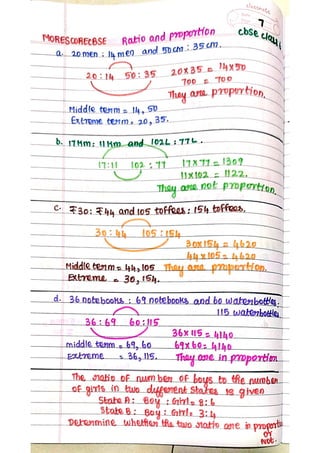 7
MORESCORECBSE Ratio and proportion cbse class 6
a. 20 men : 14 men and 50cm : 35cm.
20:14 50:35 20x35 = 14x50
700 = 700
They are proportion.
Middle term = 14, 50
Extreme term = 20, 35.
b. 17Km : 11Km and 102L : 77L.
17:11 102:77 17x77 = 1309
11x102 = 1122.
They are not proportion.
c. ₹30 : ₹44 and 105 toffees : 154 toffees.
30:44 105:154
30x154 = 4620
44x105 = 4620
Middle term = 44,105 They are proportion.
Extreme = 30, 154.
d. 36 notebooks : 69 notebooks and 60 waterbottles.
115 waterbottles
36:69 60:115
36x115 = 4140
middle term = 69, 60 69x60 = 4140
Extreme = 36, 115. They are in proportion
The ratio of number of boys to the number
of girls in two different states is given
State A: Boy : Girl = 8:6
State B: Boy : Girl = 3:4
Determine whether the two ratio are in proportion
or
Not.